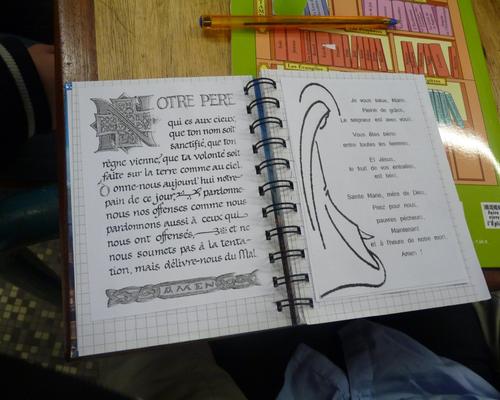 NOTRE PÈRE
qui es aux cieux,
que ton nom soit
sanctifié, que ton
règne vienne, que ta volonté soit
faite sur la terre comme au ciel.
Donne-nous aujourd'hui notre
pain de ce jour, pardonne
nous nos offenses comme nous
pardonnons aussi à ceux qui
nous ont offensés, et ne
nous soumets pas à la tenta-
tion, mais délivre-nous du Mal.
AMEN
Je vous salue, Marie,
Pleine de grâce,
Le seigneur est avec vous.
Vous êtes bénie
entre toutes les femmes,
Et Jésus,
le fruit de vos entrailles,
est béni.
Sainte Marie, mère de Dieu,
Priez pour nous,
pauvres pécheurs,
Maintenant
et à l'heure de notre mort.
Amen !
Les Évangiles